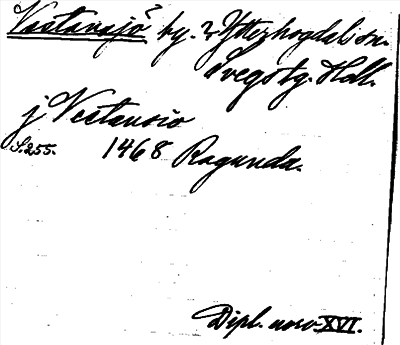 Västansjö by. Ytterhogdals sn.
Svegs tg. Hdl.
j Vestansio
S. 255. 1468 Ragunda.
Dipl. norv. XVI.